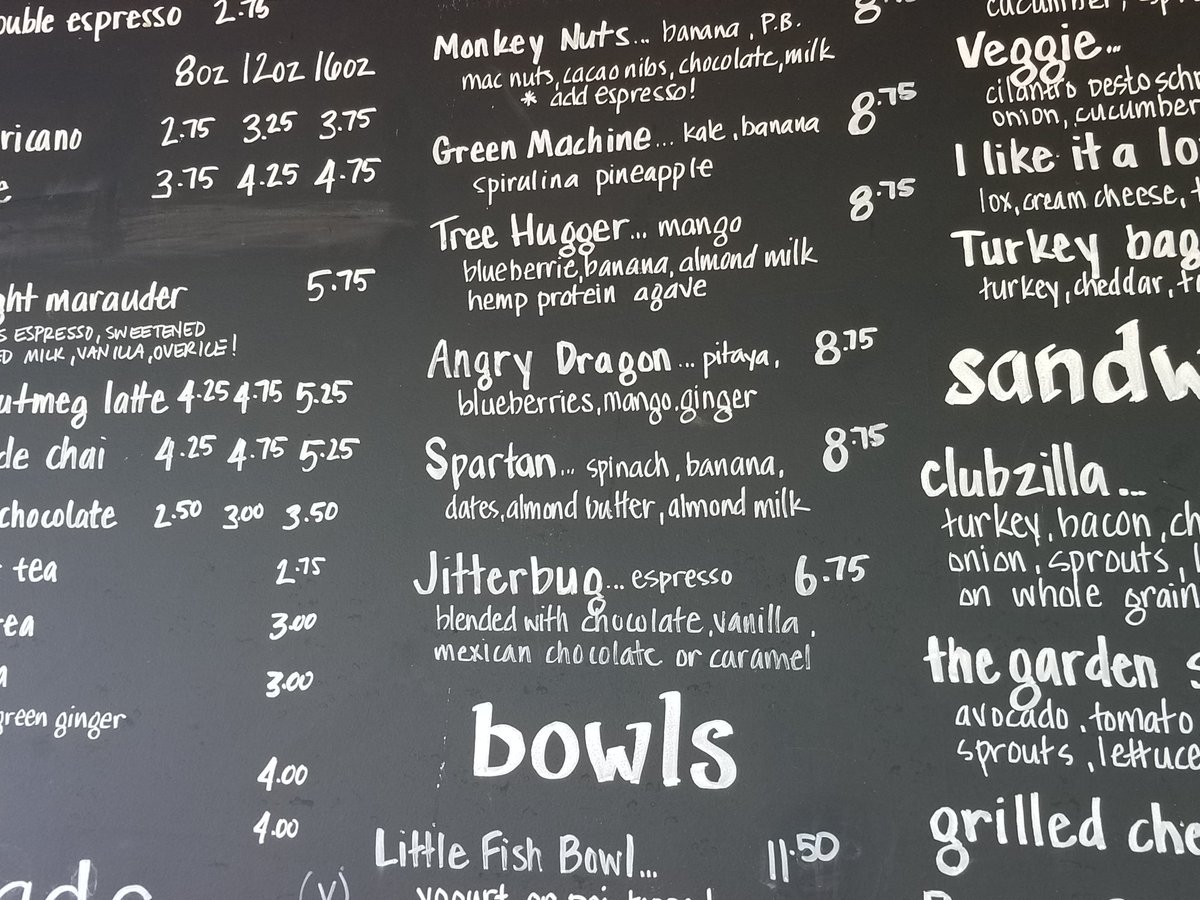 double espresso 2.75
8oz 12oz 16oz
ricano 2.75 3.25 3.75
e 3.75 4.25 4.75
ght marauder 5.75
S ESPRESSO, SWEETENED
ED MILK, VANILLA, OVER ICE!
utmeg latte 4.25 4.75 5.25
de chai 4.25 4.75 5.25
chocolate 2.50 3.00 3.50
tea 2.75
ea 3.00
a 3.00
green ginger
4.00
4.00
(v)
Monkey Nuts... banana, P.B.
mac nuts, cacao nibs, chocolate, milk
* add espresso!
Green Machine... kale, banana 8.75
spirulina pineapple
Tree Hugger... mango 8.75
blueberrie, banana, almond milk
hemp protein agave
Angry Dragon... pitaya, 8.75
blueberries, mango, ginger
Spartan... spinach, banana, 8.75
dates, almond butter, almond milk
Jitterbug... espresso 6.75
blended with chocolate, vanilla,
mexican chocolate or caramel
bowls
Little Fish Bowl... 11.50
yogurt
Veggie...
cilantro pesto
onion, cucumber
I like it a lo
lox, cream cheese,
Turkey bag
turkey, cheddar,
sandw
clubzilla...
turkey, bacon, ch
onion, sprouts,
on whole grain
the garden s
avocado, tomato
sprouts, lettuce
grilled che